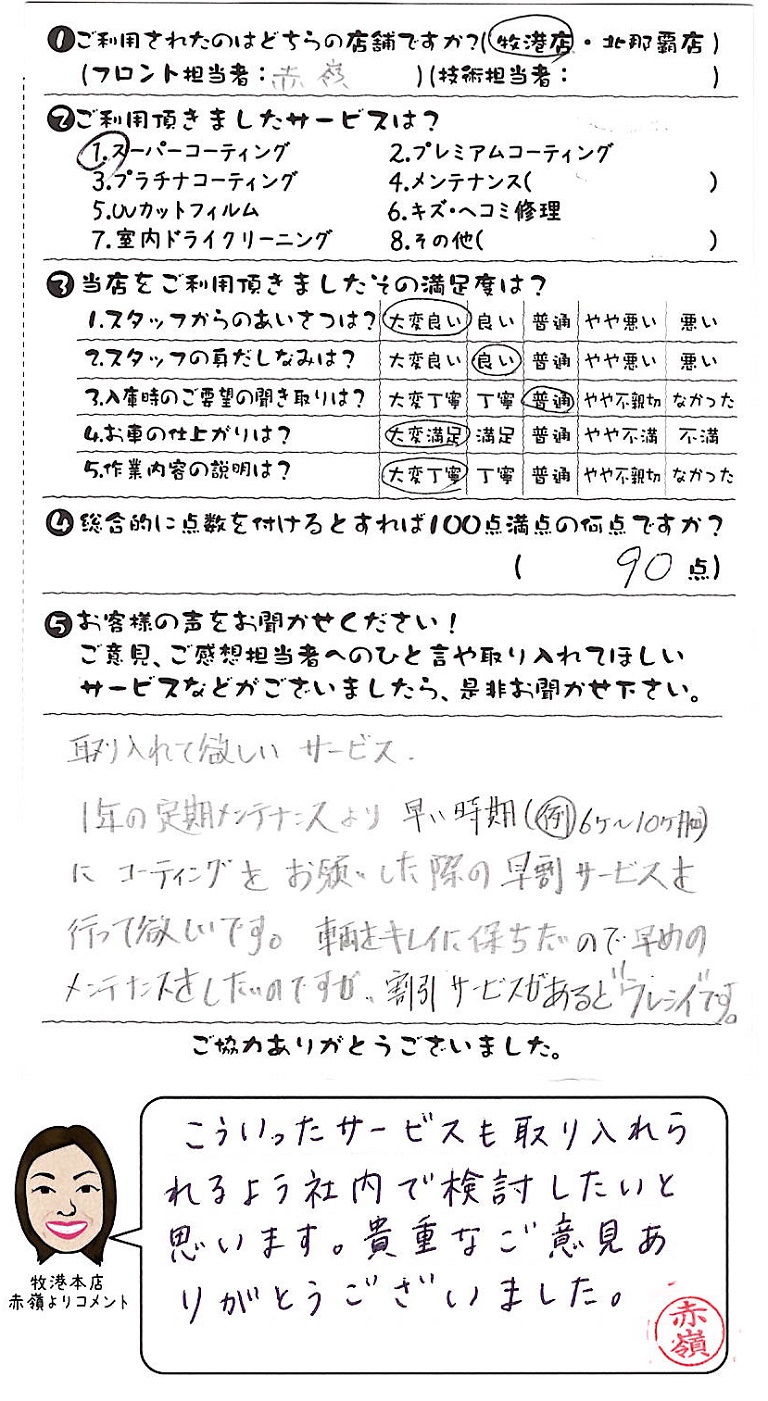 ❶ご利用されたのはどちらの店舗ですか?(牧港店・北那覇店)
(フロント担当者:赤嶺 )(技術担当者: )
❷ご利用頂きましたサービスは?
1.スーパーコーティング 2.プレミアムコーティング
3.プラチナコーティング 4.メンテナンス( )
5.UVカットフィルム 6.キズ・ヘコミ修理
7.室内ドライクリーニング 8.その他( )
❸当店をご利用頂きましたその満足度は?
1.スタッフからのあいさつは? 大変良い 良い 普通 やや悪い 悪い
2.スタッフの身だしなみは? 大変良い 良い 普通 やや悪い 悪い
3.入庫時のご要望の聞き取りは? 大変丁寧 丁寧 普通 やや不親切 なかった
4.お車の仕上がりは? 大変満足 満足 普通 やや不満 不満
5.作業内容の説明は? 大変丁寧 丁寧 普通 やや不親切 なかった
❹総合的に点数を付けるとすれば100点満点の何点ですか?
( 90 点)
❺お客様の声をお聞かせください!
ご意見、ご感想担当者へのひと言や取り入れてほしい
サービスなどがございましたら、是非お聞かせ下さい。
取り入れて欲しい サービス.
1年の定期メンテナンスより 早い時期(例)6ヶ〜10ヶ月)
に コーティングを お願いした際の 早割サービスを
行って欲しいです。 車両をキレイに保ちたいので早めの
メンテナンスをしたいのですが、割引サービスがあると"ウレシイ"です。
ご協力ありがとうございました。
こういったサービスも取り入れら
れるよう社内で検討したいと
思います。貴重なご意見あ
りがとうございました。
牧港本店
赤嶺よりコメント
赤嶺